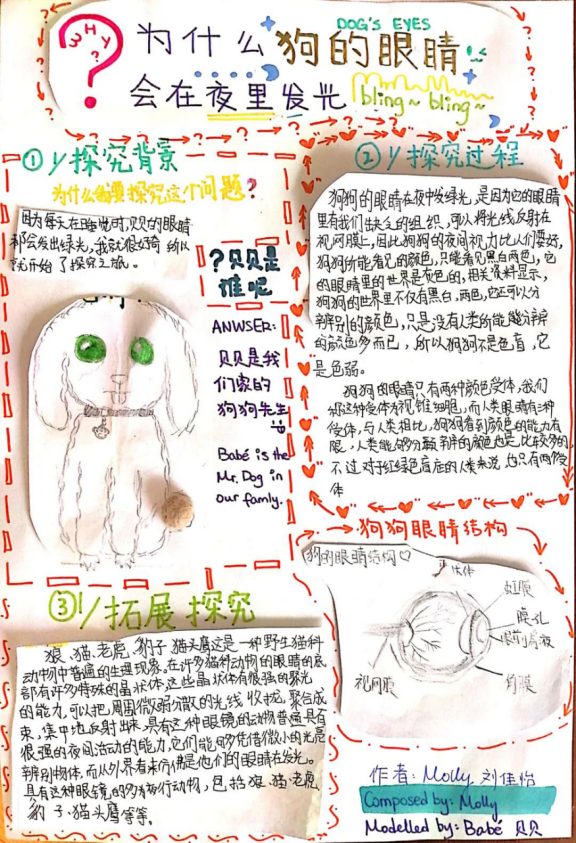 WHY
?
DOG'S EYES
为什么狗的眼睛
会在夜里发光 bling~ bling~
① 1/探究背景
为什么我要探究这个问题?
因为每天在睡觉时,贝贝的眼睛
都会发出绿光,我就很好奇 所以
就开始了探究之旅。
?贝贝是
谁呢
ANWSER:
贝贝是我
们家的
狗狗先生
Babé is the
Mr. Dog in
our famly.
② 1/探究过程
狗狗的眼睛在夜中发绿光,是因为它的眼睛
里有我们缺乏的组织,可以将光线反射在
视网膜上,因此狗狗的夜间视力比人们要好,
狗狗所能看见的颜色,只能看见黑白两色,它
的眼睛里的世界是灰色的,相关资料显示,
狗狗的世界里不仅有黑白,两色,它还可以分
辨别的颜色,只是没有人类所能够分辨
的颜色多而已,所以狗狗不是色盲,它
是色弱。
狗狗的眼睛只有两种颜色受体,我们
称这种受体为视锥细胞,而人类眼睛有三种
受体,与人类相比,狗狗看到颜色的能力有
限,人类能够分辨的颜色也是比较多的,
不过对于红绿色盲后的人类来说,也只有两个受
体
狗狗眼睛结构
狗的眼睛结构♡
状体
虹膜
瞳孔
眼前房液
视网膜
角膜
③ 1/拓展探究
狼、猫、老虎、豹子、猫头鹰这是一种野生猫科
动物中普遍的生理现象,在许多猫科动物的眼睛的底
部有许多特殊的晶状体,这些晶状体有很强的聚光
的能力,可以把周围微弱分散的光线收拢,聚合成
束,集中地反射出来,具有这种眼镜的动物普遍具有
很强的夜间活动的能力,它们能够凭借微小的光是
辨别物体,而从外界看来仿佛是他们的眼睛在发光。
具有这种眼镜的多为夜行动物,包括狼、猫、老虎
豹子、猫头鹰等等。
作者:Molly 刘佳怡
Composed by: Molly
Modelled by: Babé 贝贝